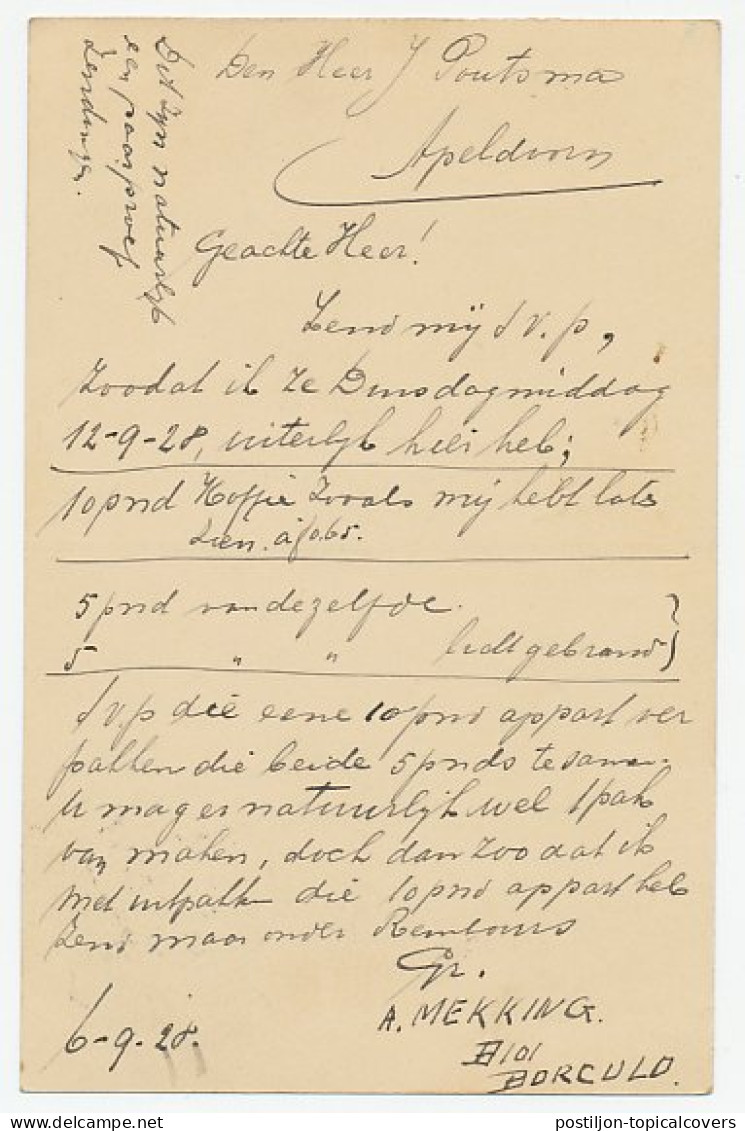 Den Heer J Poutsma
Apeldoorn
Dit zijn natuurlijk
een paar proef
zendingen.
Geachte Heer!
Zend mij s v. p,
zoodat ik ze Dinsdagmiddag
12-9-28, uiterlijk hier heb;
10 pnd Koffie zooals mij hebt late
zien. à f0.65.
5 pnd van dezelfde.
5 " " licht gebrand
s v.p die eene 10 pnd appart ver
pakken die beide 5 pnds te same-
U mag er natuurlijk wel 1 pak
van maken, doch dan zoodat ik
met uitpakk die 10 pnd appart heb
Zend maar onder Rembours
Gr.
A. MEKKING.
B101
BORCULO.
6-9-28.
postiljon-topicalcovers
delcampe.net